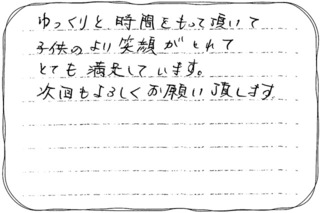 ゆっくりと時間をもって頂いて
子供のより笑顔がとれて
とても満足しています。
次回もよろしくお願い致します